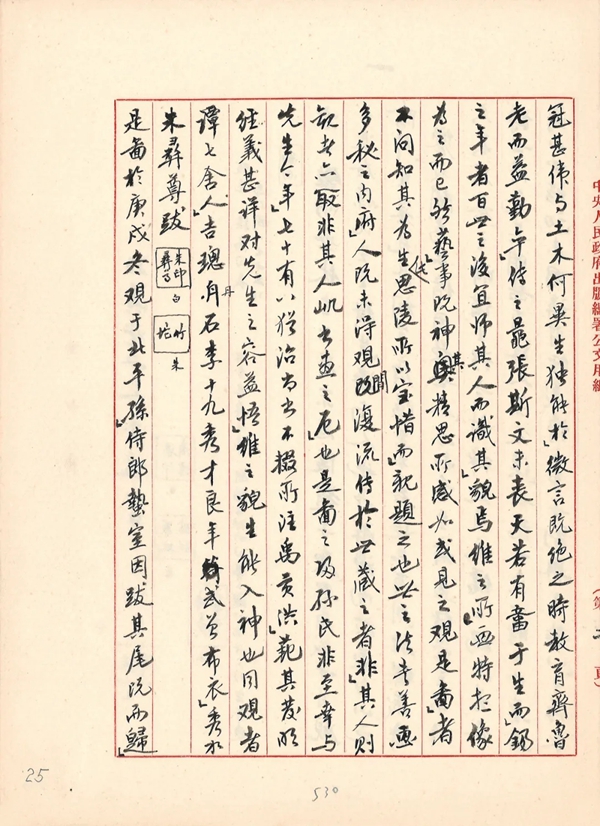 中央人民政府出版總署公文用紙 (第 頁)
冠甚偉与土木何異生独能於」微言既絶之時教育齊魯
老而益勤」傳之鼂張斯文未喪天若有啬于生而」錫
之年者百世之後宜師其人而識其」貌焉維之所画特托像
为之而已然藝事既神其精思所感如或見之观是啚」者
不问知其为生思陵所以宝惜」而親題之也世之法书善画
多秘之内府」人既未得观間復流传於世藏之者非」其人則
观者亦取非其人此书画之厄」也是啚之归孫氏非至幸与
先生今年」七十有八犹治尚书不掇所注禹贡洪」範其发明
经義甚详对先生之容益悟」維之貌生能入神也同观者
譚七舍人」吉璁舟石李十九秀才良年武曾布衣」秀水
朱彝尊跋 朱印彝尊 白 竹垞 朱
是啚於庚戌冬观于北平」孫侍郎蟄室因跋其尾既而歸」
25
530